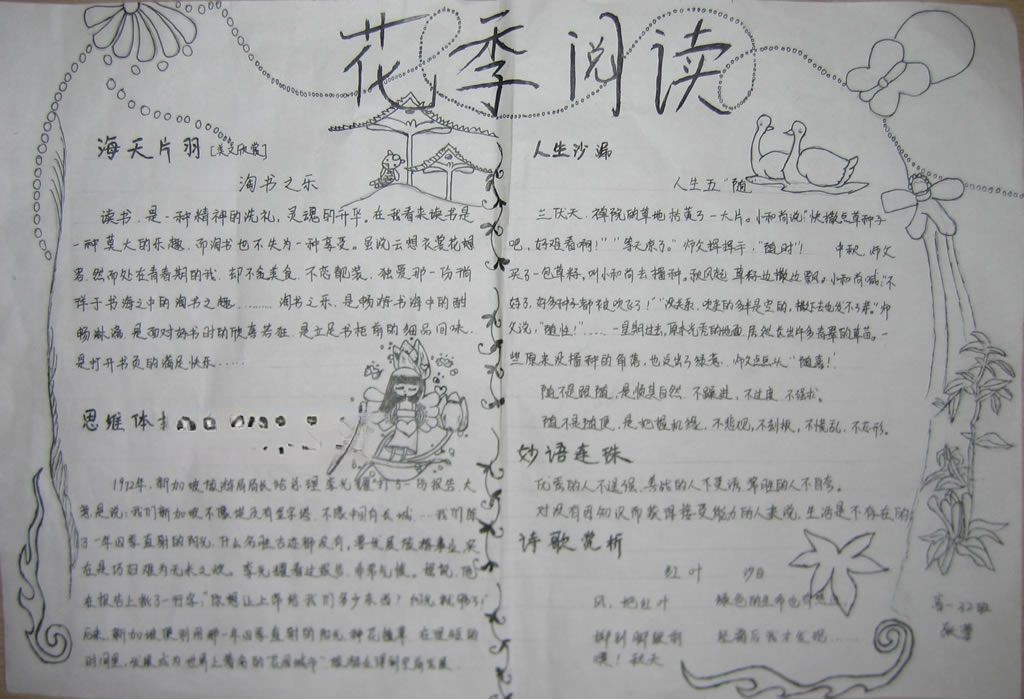 花季阅读
海天片羽 [美文欣赏]
淘书之乐
读书，是一种精神的洗礼，灵魂的升华。在我看来读书是
一种莫大的乐趣，而淘书也不失为一种享受。虽说云想衣裳花想
容，然而处在青春期的我，却不贪美食，不恋靓装，独爱那一份徜
徉于书海之中的淘书之趣………淘书之乐，是畅游书海中的酣
畅淋漓，是面对好书时的欣喜若狂，是立足书柜前的细品回味，
是打开书页的满足快乐……
思维体
1972年，新加坡旅游局局长给总理李光耀打了一份报告，大
意是说：我们新加坡不像埃及有金字塔，不像中国有长城……我们除
了一年四季直射的阳光，什么名胜古迹都没有，要发展旅游事业，实
在是巧妇难为无米之炊。李光耀看过报告，非常气愤。据说，他
在报告上批了一行字：“你想让上帝给我们多少东西？阳光就够了！”
后来，新加坡便利用那一年四季直射的阳光，种花植草，在很短的
时间里，发展成为世界上著名的“花园城市”
人生沙漏
人生五“随”
三伏天，禅院的草地枯黄了一大片。小和尚说“快撒点草种子
吧，好难看啊！”“等天凉了。”师父挥挥手，“随时！” 中秋，师父
买了一包草籽，叫小和尚去播种。秋风起，草籽边撒边飘。小和尚喊：“不
好了，好多种子都被吹飞了！”“没关系，吹走的多半是空的，撒下去也发不了芽。”师
父说，“随性！”……一星期过去，原本光秃的地面，居然长出许多青翠的草苗，一
些原来没播种的角落，也泛出了绿意，师父点点头“随喜！”
随不是跟随，是顺其自然，不躁进，不过度，不强求。
随不是随便，是把握机缘，不悲观，不刻板，不慌乱，不忘形。
妙语连珠
优秀的人不逞强，善战的人不哭泣，常胜的人不自夸。
对没有因知识而获得接受能力的人来说，生活是不存在的
诗歌赏析
红叶 沙白
风，把红叶
掷到脚跟前
噢！秋天
绿色的生命也有
经霜后我才发现……
高一32班